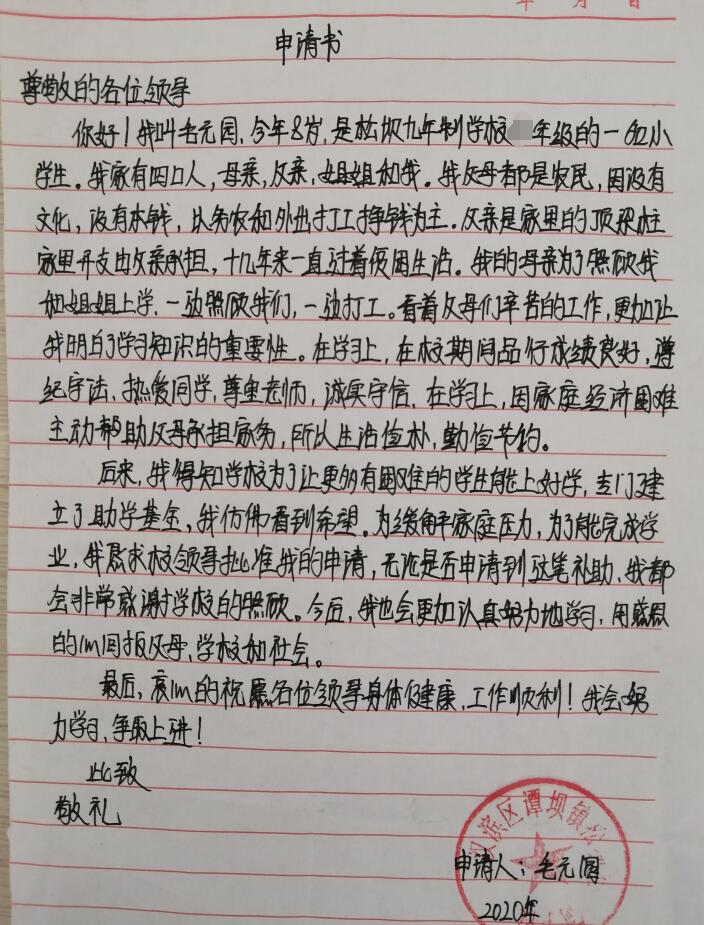 年 月 日
申请书
尊敬的各位领导
你好！我叫毛元园，今年8岁，是松坝九年制学校年级的一名小
学生。我家有四口人，母亲，父亲，姐姐和我。我父母都是农民，因没有
文化，没有本钱，以务农和外出打工挣钱为主。父亲是家里的顶梁柱
家里开支由父亲承担，十几年来一直过着贫困生活。我的母亲为了照顾我
和姐姐上学，一边照顾我们，一边打工。看着父母们辛苦的工作，更加让
我明白了学习知识的重要性。在学习上，在校期间品行成绩良好，遵
纪守法，热爱同学，尊重老师，诚实守信，在学习上，因家庭经济困难
主动帮助父母承担家务，所以生活俭朴，勤俭节约。
后来，我得知学校为了让更多有困难的学生能上好学，专门建
立了助学基金，我仿佛看到希望。为缓解家庭压力，为了能完成学
业，我恳求校领导批准我的申请，无论是否申请到这笔补助，我都
会非常感谢学校的照顾。今后，我也会更加认真努力地学习，用感恩
的心回报父母、学校和社会。
最后，衷心的祝愿各位领导身体健康，工作顺利！我会努
力学习，争取上进！
此致
敬礼
汉滨区谭坝镇松
申请人：毛元园
2020年